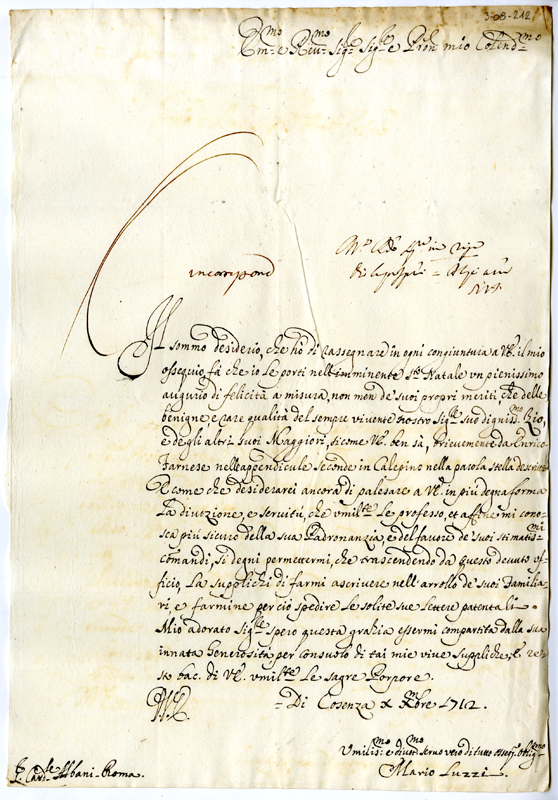 3-08-212
Em.mo e Rev.mo Sig.re Sig.re e Pron mio Colend.mo
incorrispond
Il sommo desiderio, che hò di rassegnare in ogni congiuntura a VE. il mio
ossequio, fà che io le porti nell'imminente S.to Natale vn pienissimo
augurio di felicità a misura, non men de' suoi propri meriti, che delle
benigne e rare qualità del sempre vivente nostro Sig.re suo digniss.mo Zio,
e degli altri suoi Maggiori, sicome VE. ben sà, brievemente da Enrico
Farnese nell'appendicule seconde in Calepino nella parola Stella descritte
E come che desiderarei ancora di palesare a VE. in più degna forma
La divozione, e servitù, che vmilte Le professo, et affine mi cono-
sca più sicuro della sua Padronanza, e del favore de' suoi stimatis.mi
comandi, si degni permettermi, che trascendendo da questo dovuto vf-
ficio, La supplichi di farmi ascrivere nell'arrollo de' suoi Familia-
ri, e farmine perciò spedire Le solite sue Lettere patentali.
Mio adorato Sig.re spero questa grazia essermi compartita dalla sua
innata Generosità per consuolo di tai mie vive suppliche, e re-
sto bac. di VE. vmilte Le sagre Porpore.
VE = Di Cosenza X Xmbre 1712.
Vmilis.mo e divot.mo servo vero di tutto osseq. oblig.mo
Mario Luzzi.
E. Card.le Albani = Roma.